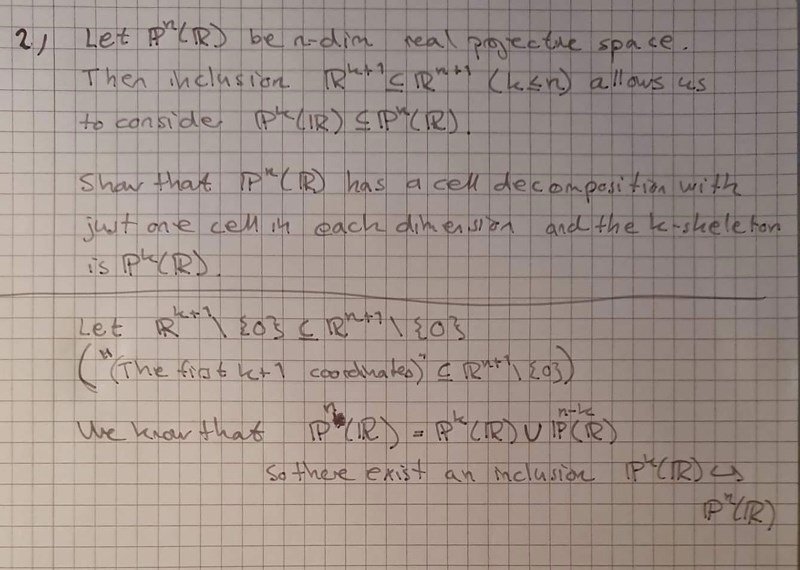 2, Let ℙⁿ(ℝ) be n-dim real projective space.
Then inclusion ℝᵏ⁺¹ ⊆ ℝⁿ⁺¹ (k≤n) allows us
to consider ℙᵏ(ℝ) ⊆ ℙⁿ(ℝ).
Show that ℙⁿ(ℝ) has a cell decomposition with
just one cell in each dimension and the k-skeleton
is ℙᵏ(ℝ).
Let ℝᵏ⁺¹\{0} ⊆ ℝⁿ⁺¹\{0}
("(The first k+1 coordinates)" ⊆ ℝⁿ⁺¹\{0})
We know that ℙⁿ(ℝ) = ℙᵏ(ℝ) ∪ ℙⁿ⁻ᵏ(ℝ)
so there exist an inclusion ℙᵏ(ℝ) ↪
ℙⁿ(ℝ)